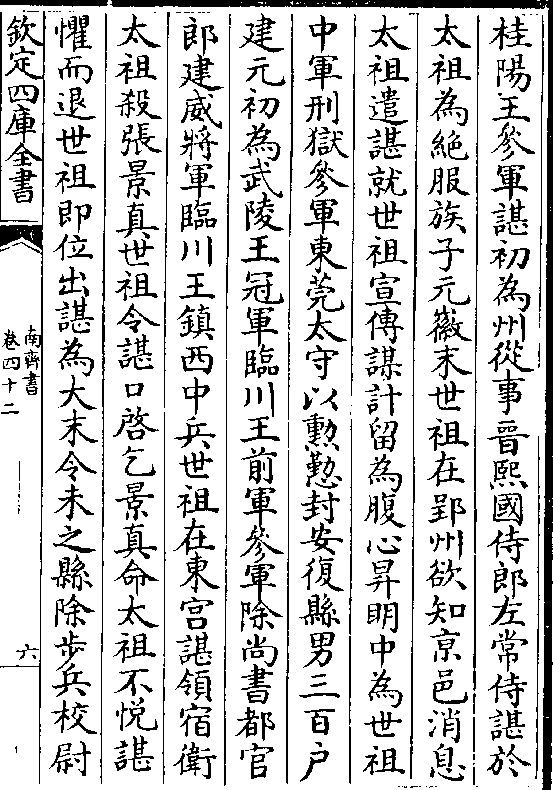 桂陽王參軍諶初為州從事晉熙國侍郎左常侍諶於
太祖為絶服族子元徽末世祖在郢州欲知京邑消息
太祖遣諶就世祖宣傳謀計留為腹心昇明中為世祖
中軍刑獄參軍東莞太守以勲懃封安復縣男三百户
建元初為武陵王冠軍臨川王前軍參軍除尚書都官
郎建威將軍臨川王鎮西中兵世祖在東宮諶領宿衛
太祖殺張景真世祖令諶口啓乞景真命太祖不悦諶
懼而退世祖即位出諶為大末令未之縣除步兵校尉
欽定四庫全書
南齊書
卷四十二
六